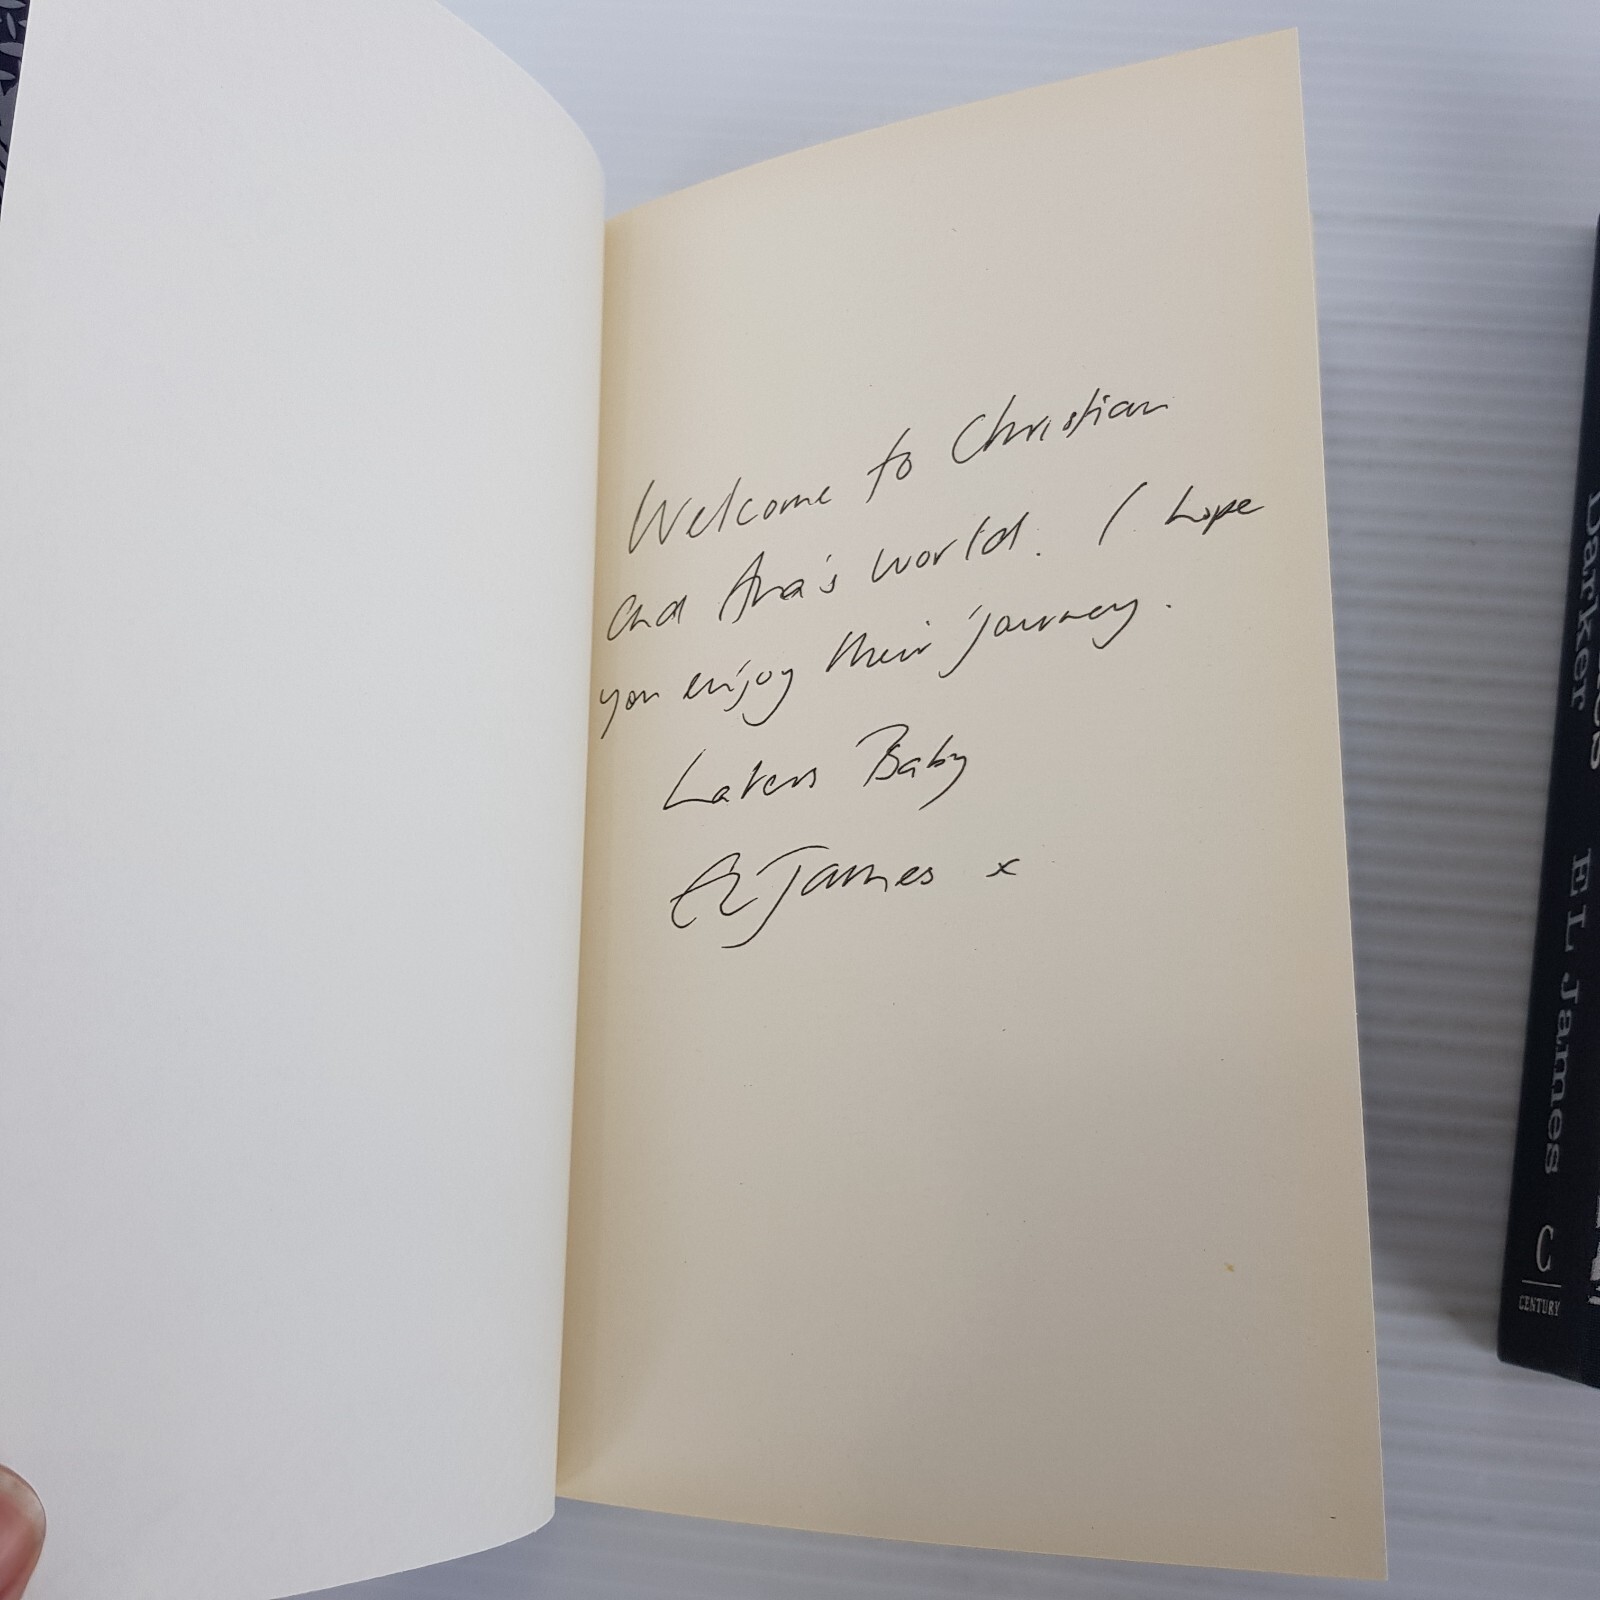 Welcome to Christian
and Ana's world. I hope
you enjoy their journey.
Laters Baby
EL James x
Darker
E L James
CENTURY